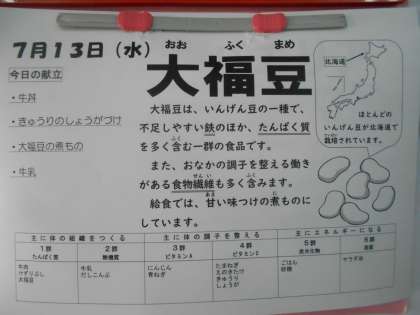 7月13日（水）
おお ふく まめ
大福豆
今日の献立
・牛丼
・きゅうりのしょうがづけ
・大福豆の煮もの
・牛乳
大福豆は、いんげん豆の一種で、
不足しやすい鉄のほか、たんぱく質
を多く含む一群の食品です。
また、おなかの調子を整える働き
がある食物繊維も多く含みます。
給食では、甘い味つけの煮ものに
しています。
北海道
ほとんどの
いんげん豆が北海道で
栽培されています。
主に体の組織をつくる 主に体の調子を整える 主にエネルギーになる
1群 2群 3群 4群 5群 6群
たんぱく質 無機質 ビタミンA ビタミンC 炭水化物 脂質
牛肉 牛乳 にんじん たまねぎ ごはん サラダ油
けずりぶし だしこんぶ 青ねぎ えのきたけ 砂糖
大福豆 きゅうり
しょうが